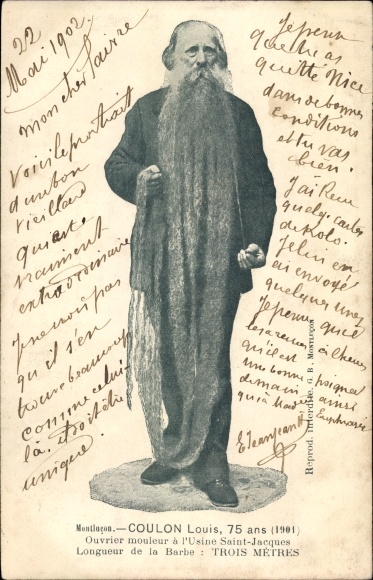 22
Mai 1902.
Mon cher Pairre
Voici le portrait
d'un bon
vieillard
qui est
vraiment
extraordinaire
Je ne crois pas
qu'il s'en
trouve beaucoup
comme celui
là. Il doit être
unique.
Je pense
que tu as
quitté Nice
dans de bonnes
conditions
et tu vas
bien.
J'ai reçu
quelq. cartes
de Polo.
Je lui en
ai envoyé
quelques unes
Je pense que
les a reçues à l'heure
qu'il est
une bonne poignée
de main ainsi
qu'à
E Jeanjean
Reprod. interdite. G. B. MONTLUÇON
Montluçon. — COULON Louis, 75 ans (1901)
Ouvrier mouleur à l'Usine Saint-Jacques
Longueur de la Barbe : TROIS MÈTRES